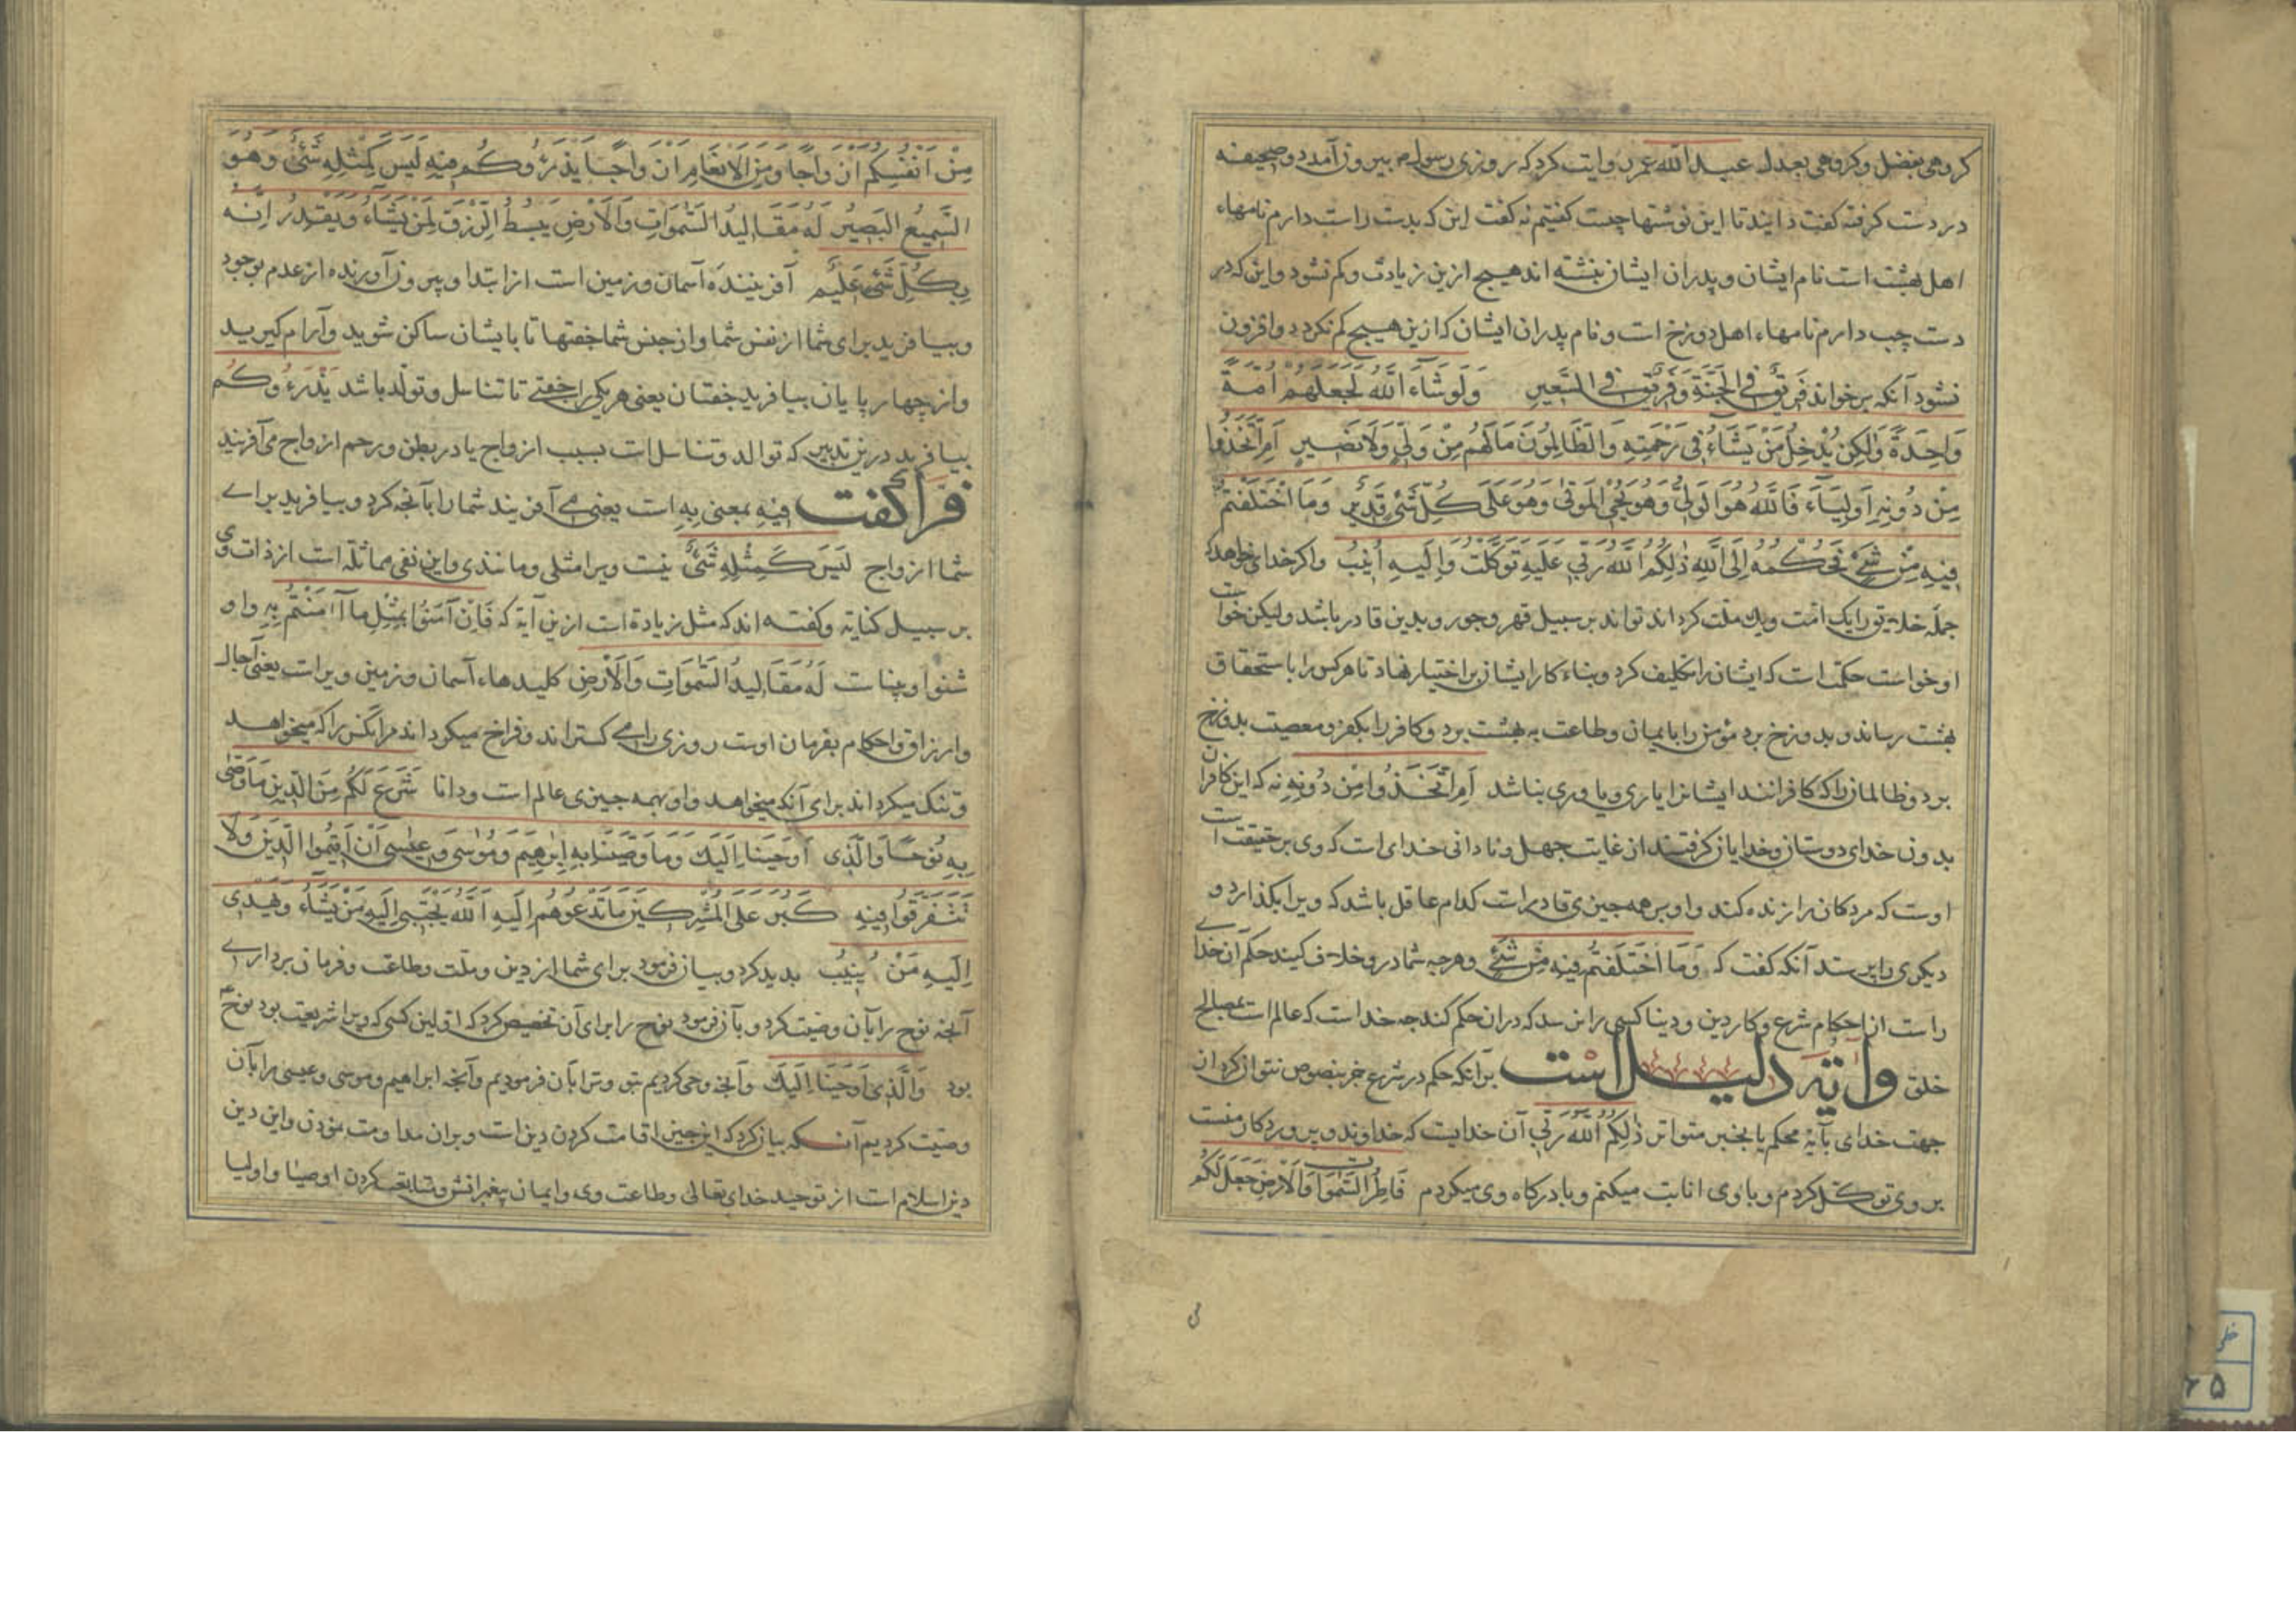 کروهی بفضل وکروهی بعدل عبد الله عمر روایت کرد که روزی رسول م بیرون آمد دو صحیفه
در دست کرفته کفت دانید تا این نوشتها چیست کفتیم نه کفت این که بدست راست دارم نامهاء
اهل بهشت است نام ایشان و پدران ایشان بنشته اند هیچ ازین زیادت وکم نشود واین که در
دست چپ دارم نامهاء اهل دوزخ است و نام پدران ایشان که ازین هیچ کم نکردد وافزون
نشود آنکه برخواند فَرِیقٌ فِی الجَنَّةِ وَفَرِیقٌ فِی السَّعِیرِ وَلَوشَاءَ اللّهُ لَجَعَلَهُم اُمَّةً
وَاحِدَةً وَلٰکِن یُدخِلُ مَن یَشَاءُ فِی رَحمَتِهِ وَالظَّالِمُونَ مَالَهُم مِن وَلِیٍّ وَلَا نَصِیرٍ اَمِ اتَّخَذُوا
مِن دُونِهِ اَولِیَاءَ فَاللّهُ هُوَ الوَلِیُّ وَهُوَ یُحیِی المَوتٰی وَهُوَ عَلٰی کُلِّ شَیءٍ قَدِیرٌ وَمَا اختَلَفتُم
فِیهِ مِن شَیءٍ فَحُکمُهُ اِلَی اللّهِ ذٰلِکُمُ اللّهُ رَبِّی عَلَیهِ تَوَکَّلتُ وَاِلَیهِ اُنِیبُ واکر خدای خواهد که
جملۀ خلایق را یک امّت ویک ملّت کرداند تواند بر سبیل قهر وجور وبدین قادر باشد ولیکن خواست
او خواست حکمت است که ایشان را تکلیف کرد وبناء کار ایشان بر اختیار نهاد تا هرکس را باستحقاق
بهشت رساند و بدوزخ برد مؤمن را بایمان وطاعت به بهشت برد وکافر را بکفر ومعصیت بدوزخ
برد وظالمان را که کافرانند ایشانرا یاری ویاوری نباشد اَمِ اتَّخَذُوا مِن دُونِهِ نه که این کافران
بدون خدای دوستان وخدایان کرفتند از غایت جهل ونادانی خدای است که وی بر حقیقت است
اوست که مردکان را زنده کند واو بر همه چیزی قادر است کدام عاقل باشد که ویرا بکذارد و
دیکری را پرستد آنکه کفت که وَمَا اختَلَفتُم فِیهِ مِن شَیءٍ وهرچه شما در و خلاف کنید حکم آن خدای
راست از احکام شرع وکار دین ودنیا کسی را نرسد که در ان حکم کند جه خداست که عالم است بمصالح
خلق وآیة دلیل است برآنکه حکم در شرع جز بنصوص نتوان کرد از
جهت خدای بآیۀ محکم یا بخبر متواتر ذٰلِکُمُ اللّهُ رَبِّی آن خدایست که خداوند وپروردکار منست
بر وی توکّل کردم وبا وی انابت میکنم وبا درکاه وی میکردم فَاطِرُ السَّمٰوَاتِ وَالاَرضِ جَعَلَ لَکُم
مِن اَنفُسِکُم اَزوَاجًا وَمِنَ الاَنعَامِ اَزوَاجًا یَذرَؤُکُم فِیهِ لَیسَ کَمِثلِهِ شَیءٌ وَهُوَ
السَّمِیعُ البَصِیرُ لَهُ مَقَالِیدُ السَّمٰوَاتِ وَالاَرضِ یَبسُطُ الرِّزقَ لِمَن یَشَاءُ وَیَقدِرُ اِنَّهُ
بِکُلِّ شَیءٍ عَلِیمٌ آفرینندۀ آسمان وزمین است از ابتدا وبیرون آورنده از عدم بوجود
وبیافرید برای شما از نفس شما واز جنس شما جفتها تا با ایشان ساکن شوید وآرام کیرید
واز چهار پایان بیافرید جفتان یعنی هر یکی را جفتی تا تناسل وتولّد باشد یَذرَؤُکُم
بیافرید درین تدبیر که توالد وتناسل است بسبب ازواج یا در بطن ورحم ازواج می آفریند
فرّا کفت فِیهِ بمعنی بِهِ است یعنی می آفریند شما را بآنجه کرد وبیافرید برای
شما از ازواج لَیسَ کَمِثلِهِ شَیءٌ نیست ویرا مثلی ومانندی واین نفی مماثله است از ذات وی
بر سبیل کنایه وکفته اند که مثل زیادة است ازین آیة که فَاِن آمَنُوا بِمِثلِ مَا آمَنتُم بِهِ واو
شنوا وبیناست لَهُ مَقَالِیدُ السَّمٰوَاتِ وَالاَرضِ کلیدهاء آسمان وزمین ویراست یعنی آجال
وارزاق واحکام بفرمان اوست روزی را می کستراند وفراخ میکرداند مر آنکس را که میخواهد
وتنک میکرداند برای آنکه میخواهد واو بهمه جیزی عالم است ودانا شَرَعَ لَکُم مِنَ الدِّینِ مَا وَصّٰی
بِهِ نُوحًا وَالَّذِی اَوحَینَا اِلَیكَ وَمَا وَصَّینَا بِهِ اِبرٰهِیمَ وَمُوسٰی وَعِیسٰی اَن اَقِیمُوا الدِّینَ وَلَا
تَتَفَرَّقُوا فِیهِ کَبُرَ عَلَی المُشرِکِینَ مَا تَدعُوهُم اِلَیهِ اَللّهُ یَجتَبِی اِلَیهِ مَن یَشَاءُ وَیَهدِی
اِلَیهِ مَن یُنِیبُ بدید کرد وبیان فرمود برای شما از دین وملّت وطاعت وفرمان برداری
آنجه نوح را بآن وصیّت کرد وبآن فرمود نوح را برای آن تخصیص کرد که اوّلین کسی که ویرا شریعت بود نوح
بود وَالَّذِی اَوحَینَا اِلَیكَ وآنجه وحی کردیم بتو وترا بآن فرمودیم وآنجه ابراهیم وموسی وعیسی را بآن
وصیّت کردیم آنکه بیان کرد که این جیز اقامت کردن دین است وبران مداومت نمودن واین دین
دین اسلام است از توحید خدای تعالی وطاعت وی وایمان پیغمبرانش ومتابعت کردن اوصیا واولیا